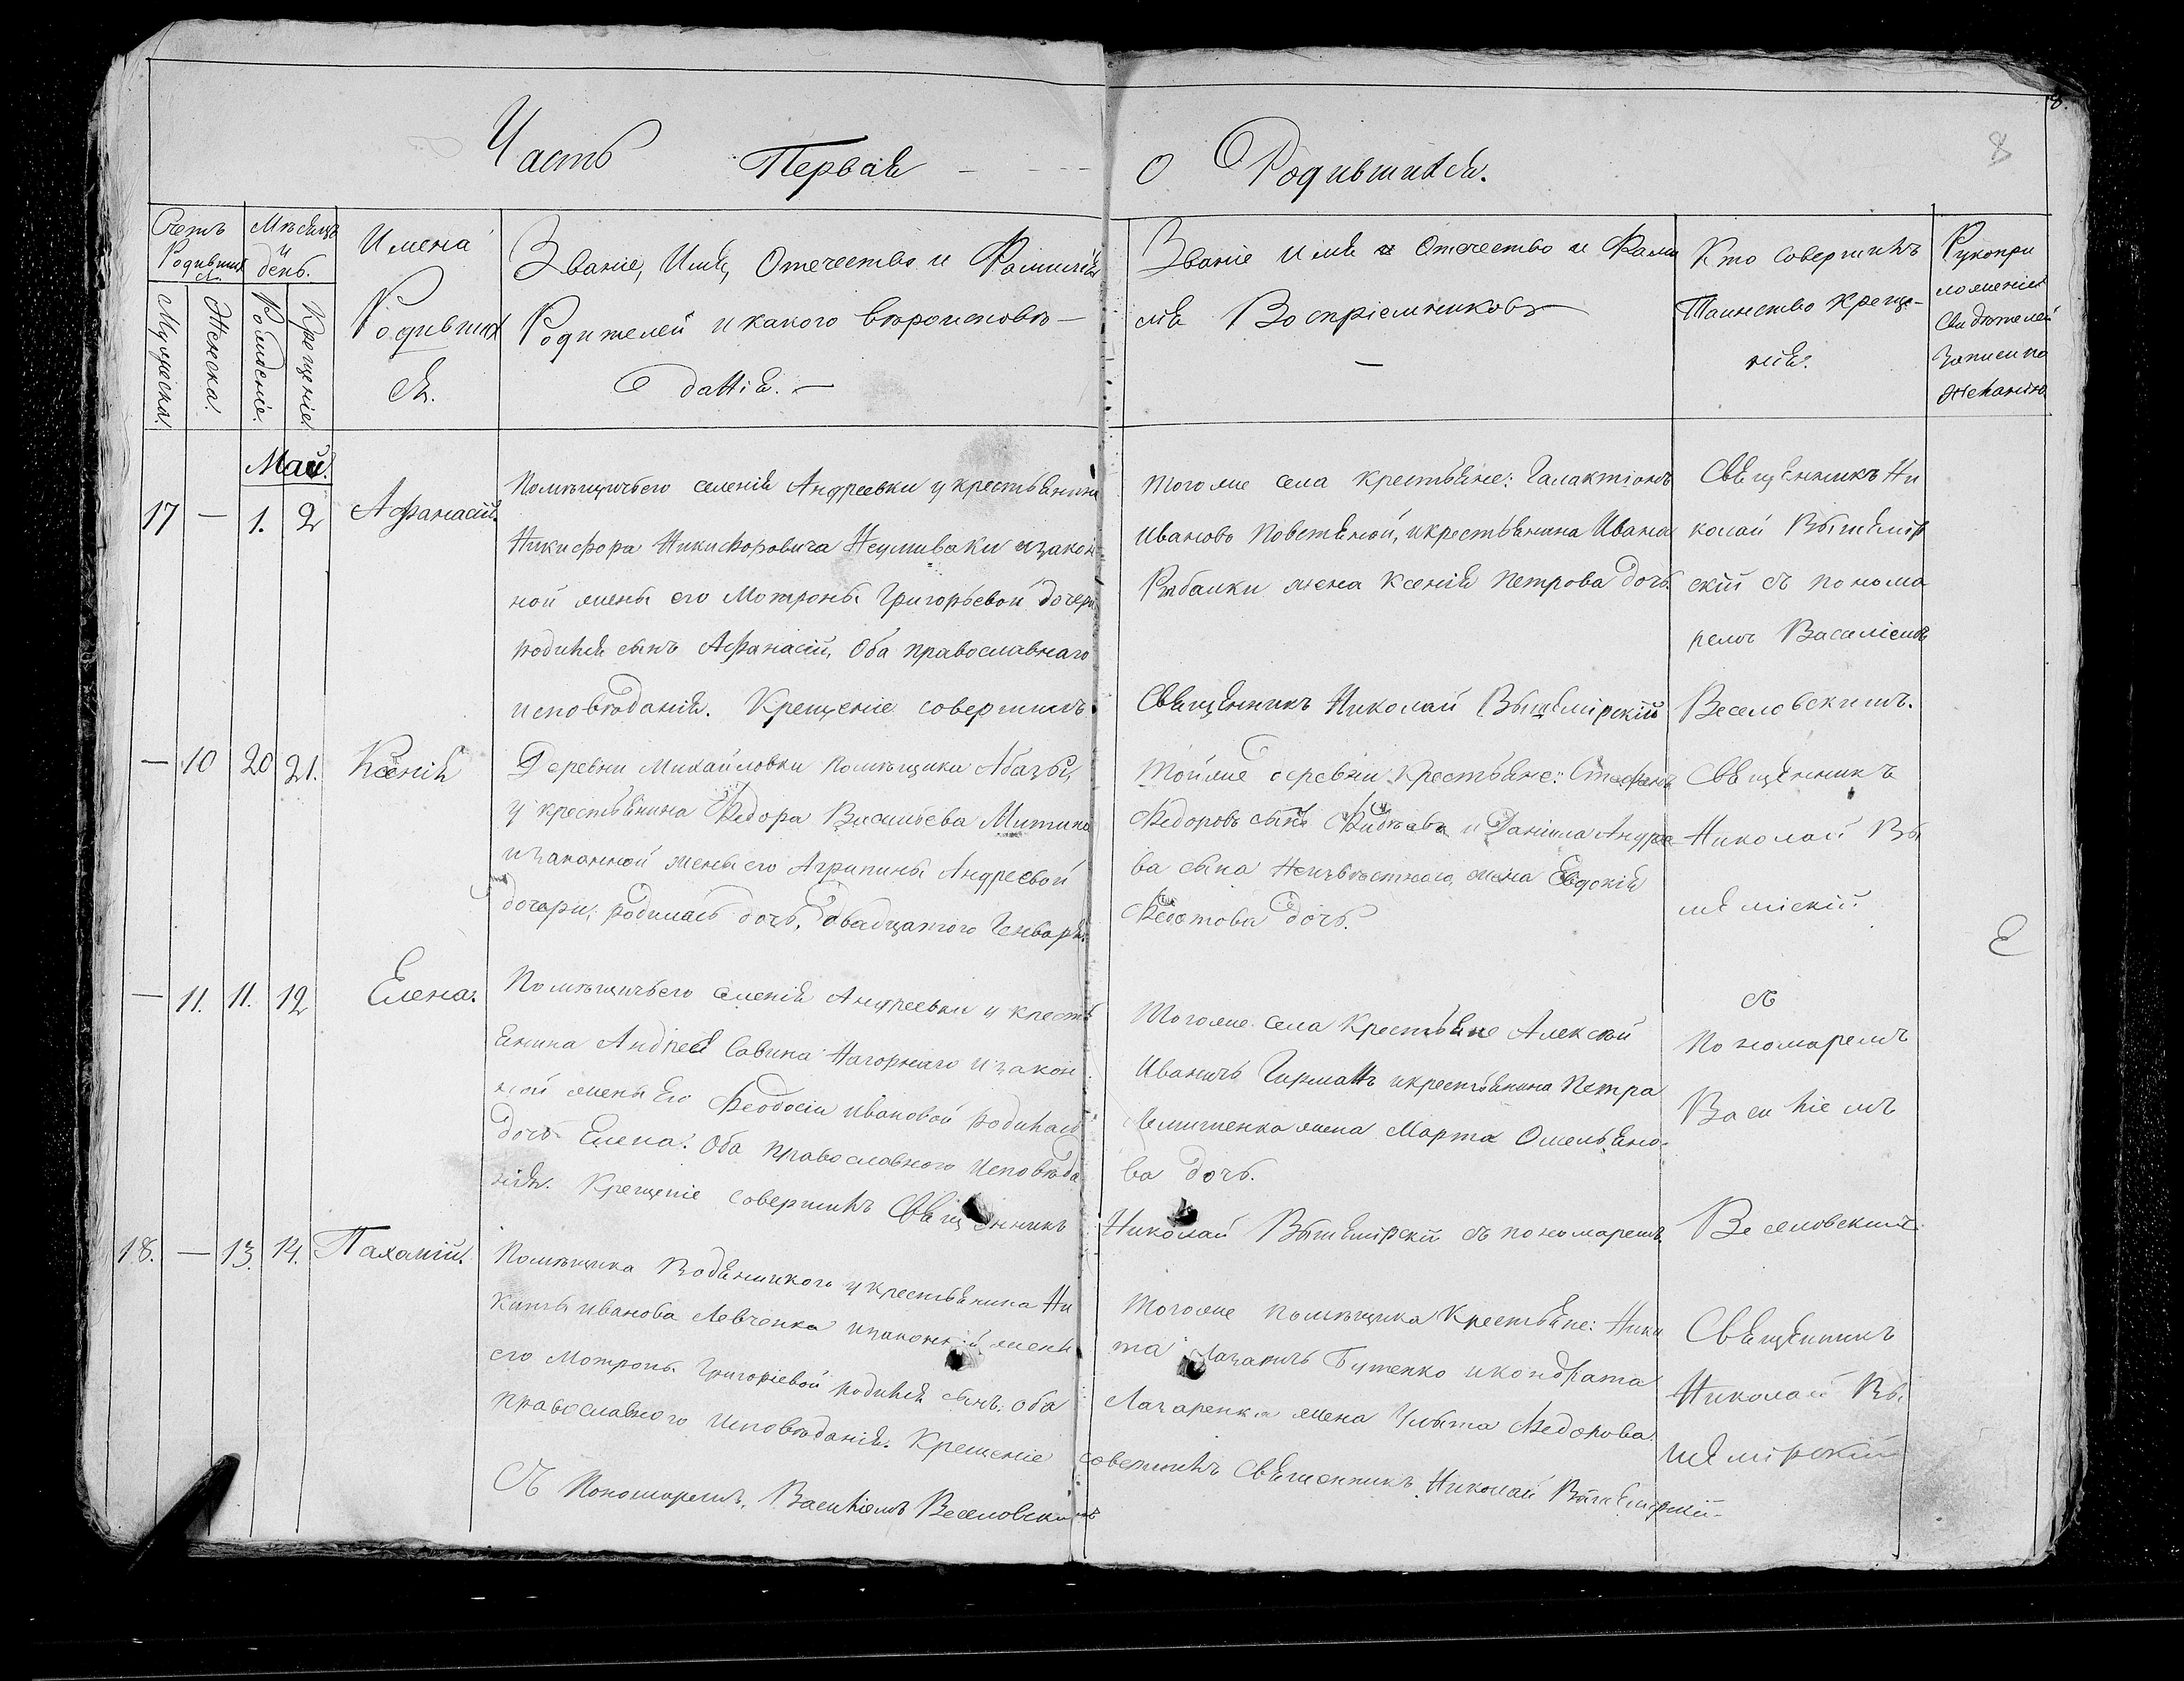 8.
8
Часть Первая
О Родившихся.
Счетъ Родившихся.
Мѣсяцъ и день.
Имена Родившихся.
Званіе, Имя, Отечество и Фамилія
Родителей и какого вѣроисповѣ-
данія.
Званіе имя и Отечество и Фами
лія Воспріемниковъ
Кто совершилъ
Таинство Креще-
нія.
Рукопри
ложеніе
свидѣтелей
записи по
желанію
Мужеска.
Женска.
Рожденіе.
Крещеніе.
Май.
17 — 1. 2 Афанасій.
Помѣщичьего селенія Андреевки у крестьянина
Никифора Никифоровича Неумиваки и закон
ной жены его Мотроны Григорьевой дочери
родился сынъ Афанасій, Оба православнаго
исповѣданія. Крещеніе совершилъ
Того же села крестьяне: Галактіонъ
Ивановъ Повстяной, и крестьянина Ивана
Рыбалки жена Ксенія Петрова дочь.
Священникъ Николай Вышемірскій
Священникъ Ни
колай Вышемір
скій съ понома
ремъ Василіемъ
Веселовскимъ.
— 10 20 21. Ксенія
Деревни Михайловки помѣщика Абазы,
у крестьянина Федора Васильева
и законной жены его Агрипины Андреевой
дочери, родилась дочь, двадцатого Генваря.
Той же деревни крестьяне: Стефанъ
Федоровъ сынъ и Даніила Андрее
ва сына Неизвѣстного, жена Евдокія
Федотова дочь.
Священникъ
Николай Вы
шеміскій.
Е
— 11. 11. 12 Елена.
Помѣщичьего селенія Андреевки у кресть
янина Андрея Савина Нагорнаго и закон
ной жены Его Феодосіи Ивановой родилась
дочь Елена. Оба православного Исповѣда
нія. Крещеніе совершилъ Священникъ
Того же села Крестьяне Алексѣй
Ивановъ и крестьянина Петра
жена Марта Омельяно-
ва дочь.
Николай Вышемірскій съ пономаремъ
съ
Пономаремъ
Василіемъ
Веселовскимъ
18. — 13. 14. Пахомій.
Помѣщика Водяницкого у крестьянина Ни
киты Иванова Левченка и законной жены
его Мотроны Григоріевой родился сынъ. Оба
православного Исповѣданія. Крещеніе
Съ Пономаремъ, Василіемъ Веселовскимъ
Того же помѣщика Крестьяне: Ники
та Бутенко и Кондрата
Лазаренка жена Улыта Федорова.
совершилъ Священникъ Николай Вышемірскій.
Священникъ
Николай Вы
шемірскій